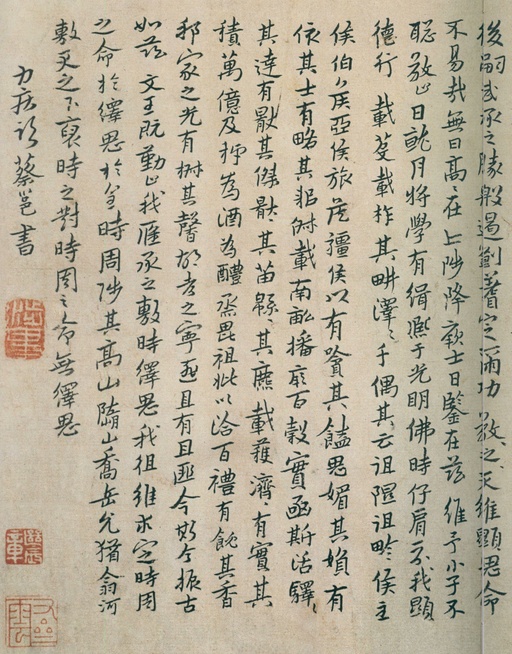 後嗣武承之勝殷遏劉耆定爾功 敬之〻天維顯思命
不易哉無曰高〻在上陟降厥士日鑒在茲 維予小子不
聰敬止日就月將學有緝熙于光明佛時仔肩示我顯
德行 載芟載柞其畊澤〻千耦其耘徂隰徂畛侯主
侯伯侯亞侯旅侯彊侯以有嗿其饁思媚其婦有
依其士有略其耜俶載南畝播厥百穀實函斯活驛〻
其達有厭其傑厭〻其苗緜〻其麃載穫濟〻有實其
積萬億及秭為酒為醴烝畀祖妣以洽百禮有飶其香
邦家之光有椒其馨胡考之寧匪且有且匪今斯今振古
如茲 文王既勤止我應承之敷時繹思我徂維求定時周
之命於繹思於皇時周陟其高山隨山喬岳允猶翕河
敷天之下裒時之對時周之命無繹思
力疾 蔡邕書